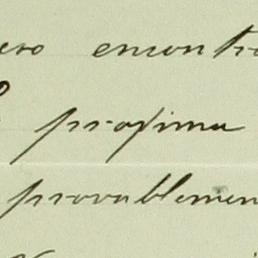 ero encontra
proxima
provablemen